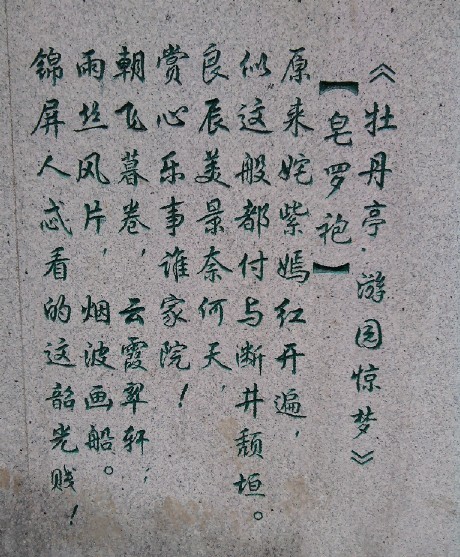 《牡丹亭·游园惊梦》
【皂罗袍】
原来姹紫嫣红开遍，
似这般都付与断井颓垣。
良辰美景奈何天，
赏心乐事谁家院！
朝飞暮卷，云霞翠轩，
雨丝风片，烟波画船。
锦屏人忒看的这韶光贱！